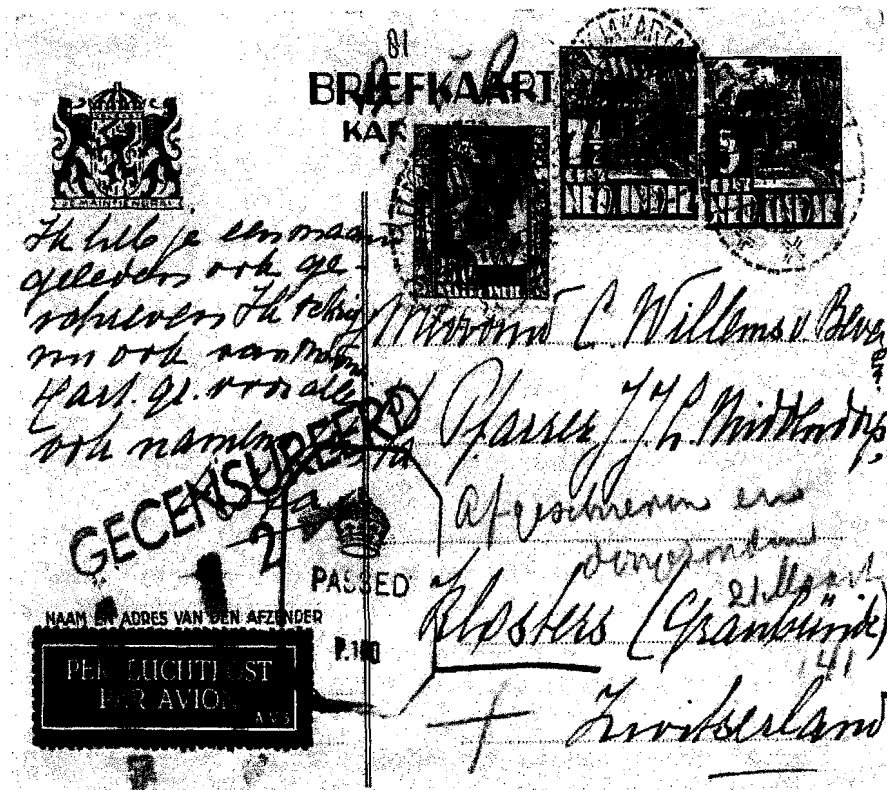 BRIEFKAART
JE MAINTIENDRAI
7½
5
NED. INDIE
NED. INDIE
Ik heb je een maan
geleden ook ge-
schreven Ik
nu ook van
Hart. gr. voor alle
ook namens
GECENSUREERD
2
PASSED
P.
NAAM EN ADRES VAN DEN AFZENDER
PER LUCHTPOST
PAR AVION
AV3
Mevrouw C. Willems v. Beve
Pfarrer J. H. Middendorp
Afgeschreven en
doorgezonden
21 Maart
'41
Klosters (Graubünde)
Zwitserland